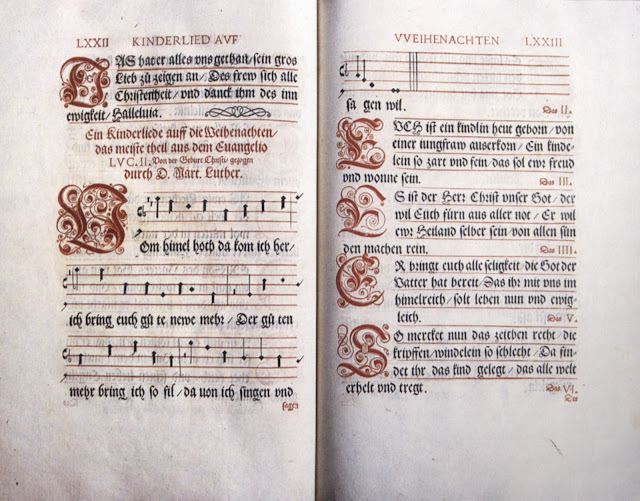 LXXII KINDERLIED AVF
DAS hat er alles vns gethan/sein gros
Lieb zů zeigen an/Des frew sich alle
Christenheit/vnd danck ihm des inn
ewigkeit/Halleluia.
Ein Kinderliede auff die Weihenachten/
das meiste theil aus dem Euangelio
LVC.II. Von der Geburt Christi/gezogen
durch D. Mart. Luther.
VOm himel hoch da kom ich her/
ich bring euch gůte newe mehr/Der gůten
mehr bring ich so fil/da uon ich singen vnd
sagen
VVEIHENACHTEN LXXIII
sagen wil.
Das II.
EVCH ist ein kindlin heut geborn/von
einer iungfraw auserkorn/Ein kinde-
lein so zart und fein/das sol ewr freud
und wonne sein.
Das III.
ES ist der Herr Christ unser Got/der
wil Euch fürn aus aller not/Er wil
ewr Heiland selber sein/von allen sün
den machen rein.
Das IIII.
ER bringt euch alle seligkeit/die Got der
Vatter hat bereit/Das ihr mit uns im
himelreich/solt leben nun und ewig-
leich.
Das V.
SO mercket nun das zeichen recht/die
kripffen/windelein so schlecht/Da fin-
det ihr das kind gelegt/das alle welt
erhelt und tregt.
Das VI.
Des